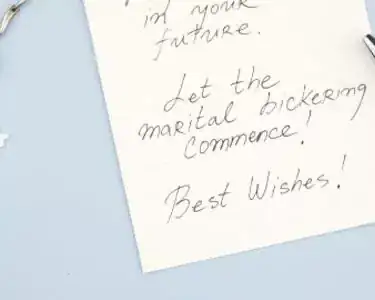 in your
future.
Let the
marital bickering
commence!
Best Wishes!